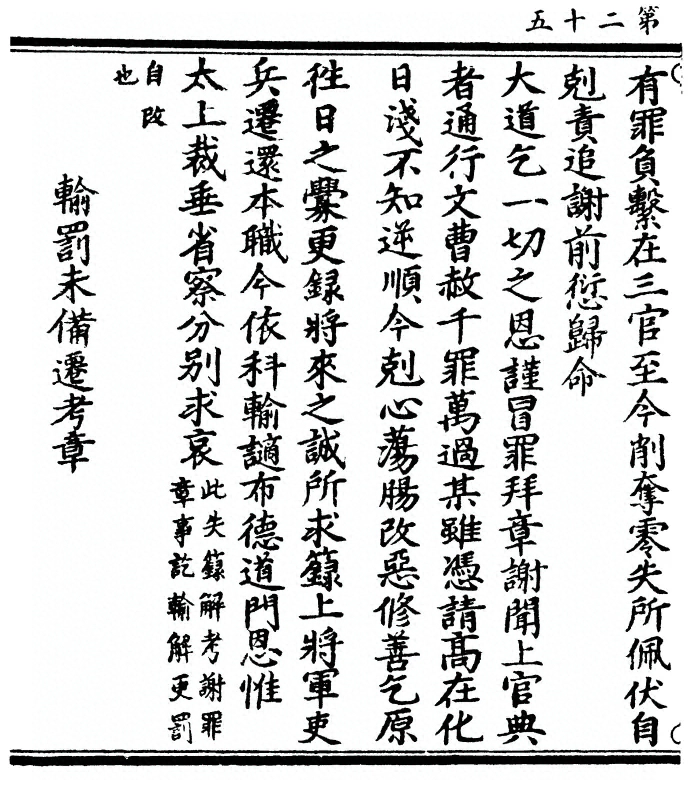 第二十五
有罪負繫在三官至今削奪零失所佩伏自
剋責追謝前愆歸命
大道乞一切之恩謹冒罪拜章謝聞上官典
者通行文曹赦千罪萬過某雖憑請高在化
日淺不知逆順今剋心蕩腸改惡修善乞原
往日之釁更録將來之誠所求籙上將軍吏
兵遷還本職今依科輸讁布德道門恩惟
太上裁垂省察分別求哀此失籙解考謝罪
章事訖輸解更罰
自改
也
輸罰未備遷考章